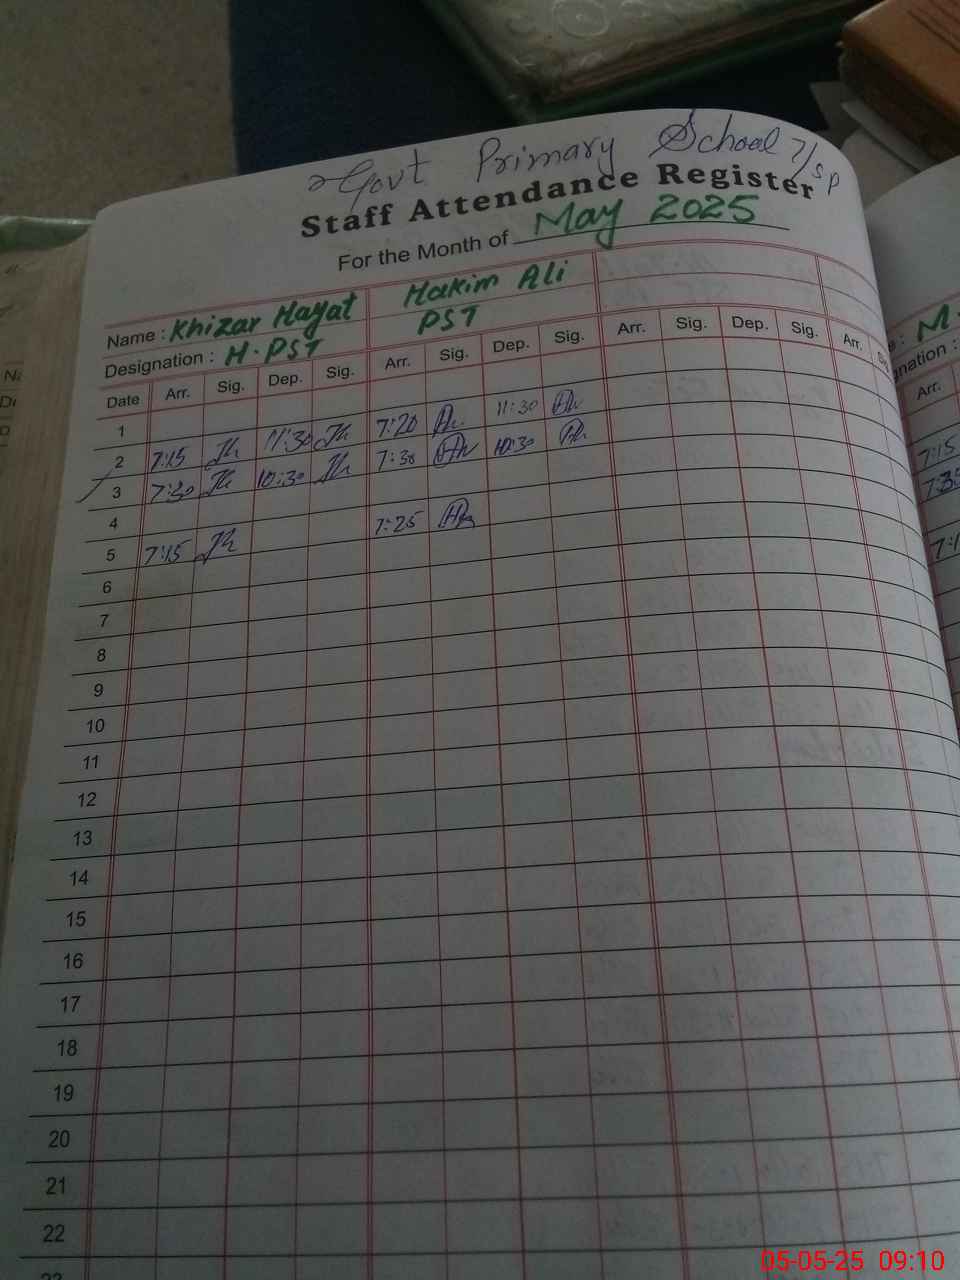 Govt Primary School 7/SP
Staff Attendance Register
For the Month of May 2025
Name : Khizar Hayat Hakim Ali
Designation : H.PST PST
Date Arr. Sig. Dep. Sig. Arr. Sig. Dep. Sig. Arr. Sig. Dep. Sig. Arr.
1
2 7:15 11:30 7:20 11:30
3 7:30 10:30 7:30 10:30
4
5 7:15 7:25
6
7
8
9
10
11
12
13
14
15
16
17
18
19
20
21
22
23
M.
Arr.
7:15
05-05-25 09:10